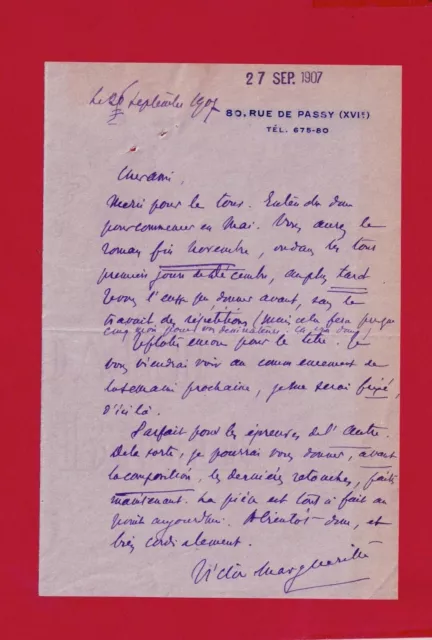 27 SEP. 1907
Le 26 Septembre 1907
80, RUE DE PASSY (XVIe)
TÉL. 675-80
Cher ami,
Merci pour le tout. Entendu donc
pour commencer en Mai. Vous aurez le
roman fin novembre, ou dans les tous
premiers jours de décembre, au plus tard
Vous l'eusse pu donner avant, sans le
travail des répétitions (mais cela fera presque
cinq mois pour vos
encore pour le titre. Je
vous viendrai voir au commencement de
la semaine prochaine, je me serai fixé,
d'ici là.
Parfait pour les épreuves de l'Autre.
De la sorte, je pourrai vous donner, avant
la composition, les dernières retouches, faites
maintenant. La pièce est tout à fait au
point aujourd'hui. A bientôt donc, et
très cordialement.
Victor Margueritte